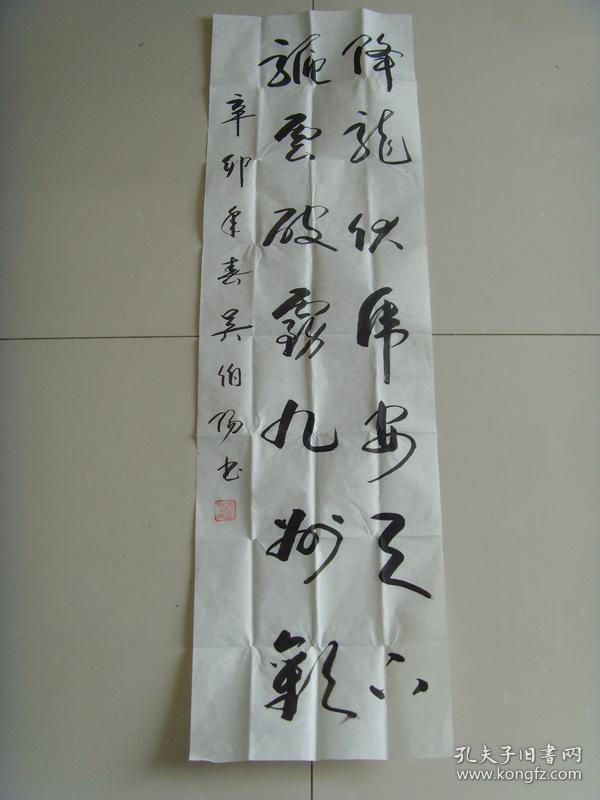 降龍伏虎安天下
驅雲破霧九州歡
辛卯年春吴伯陽书
孔夫子旧书网
www.kongfz.com